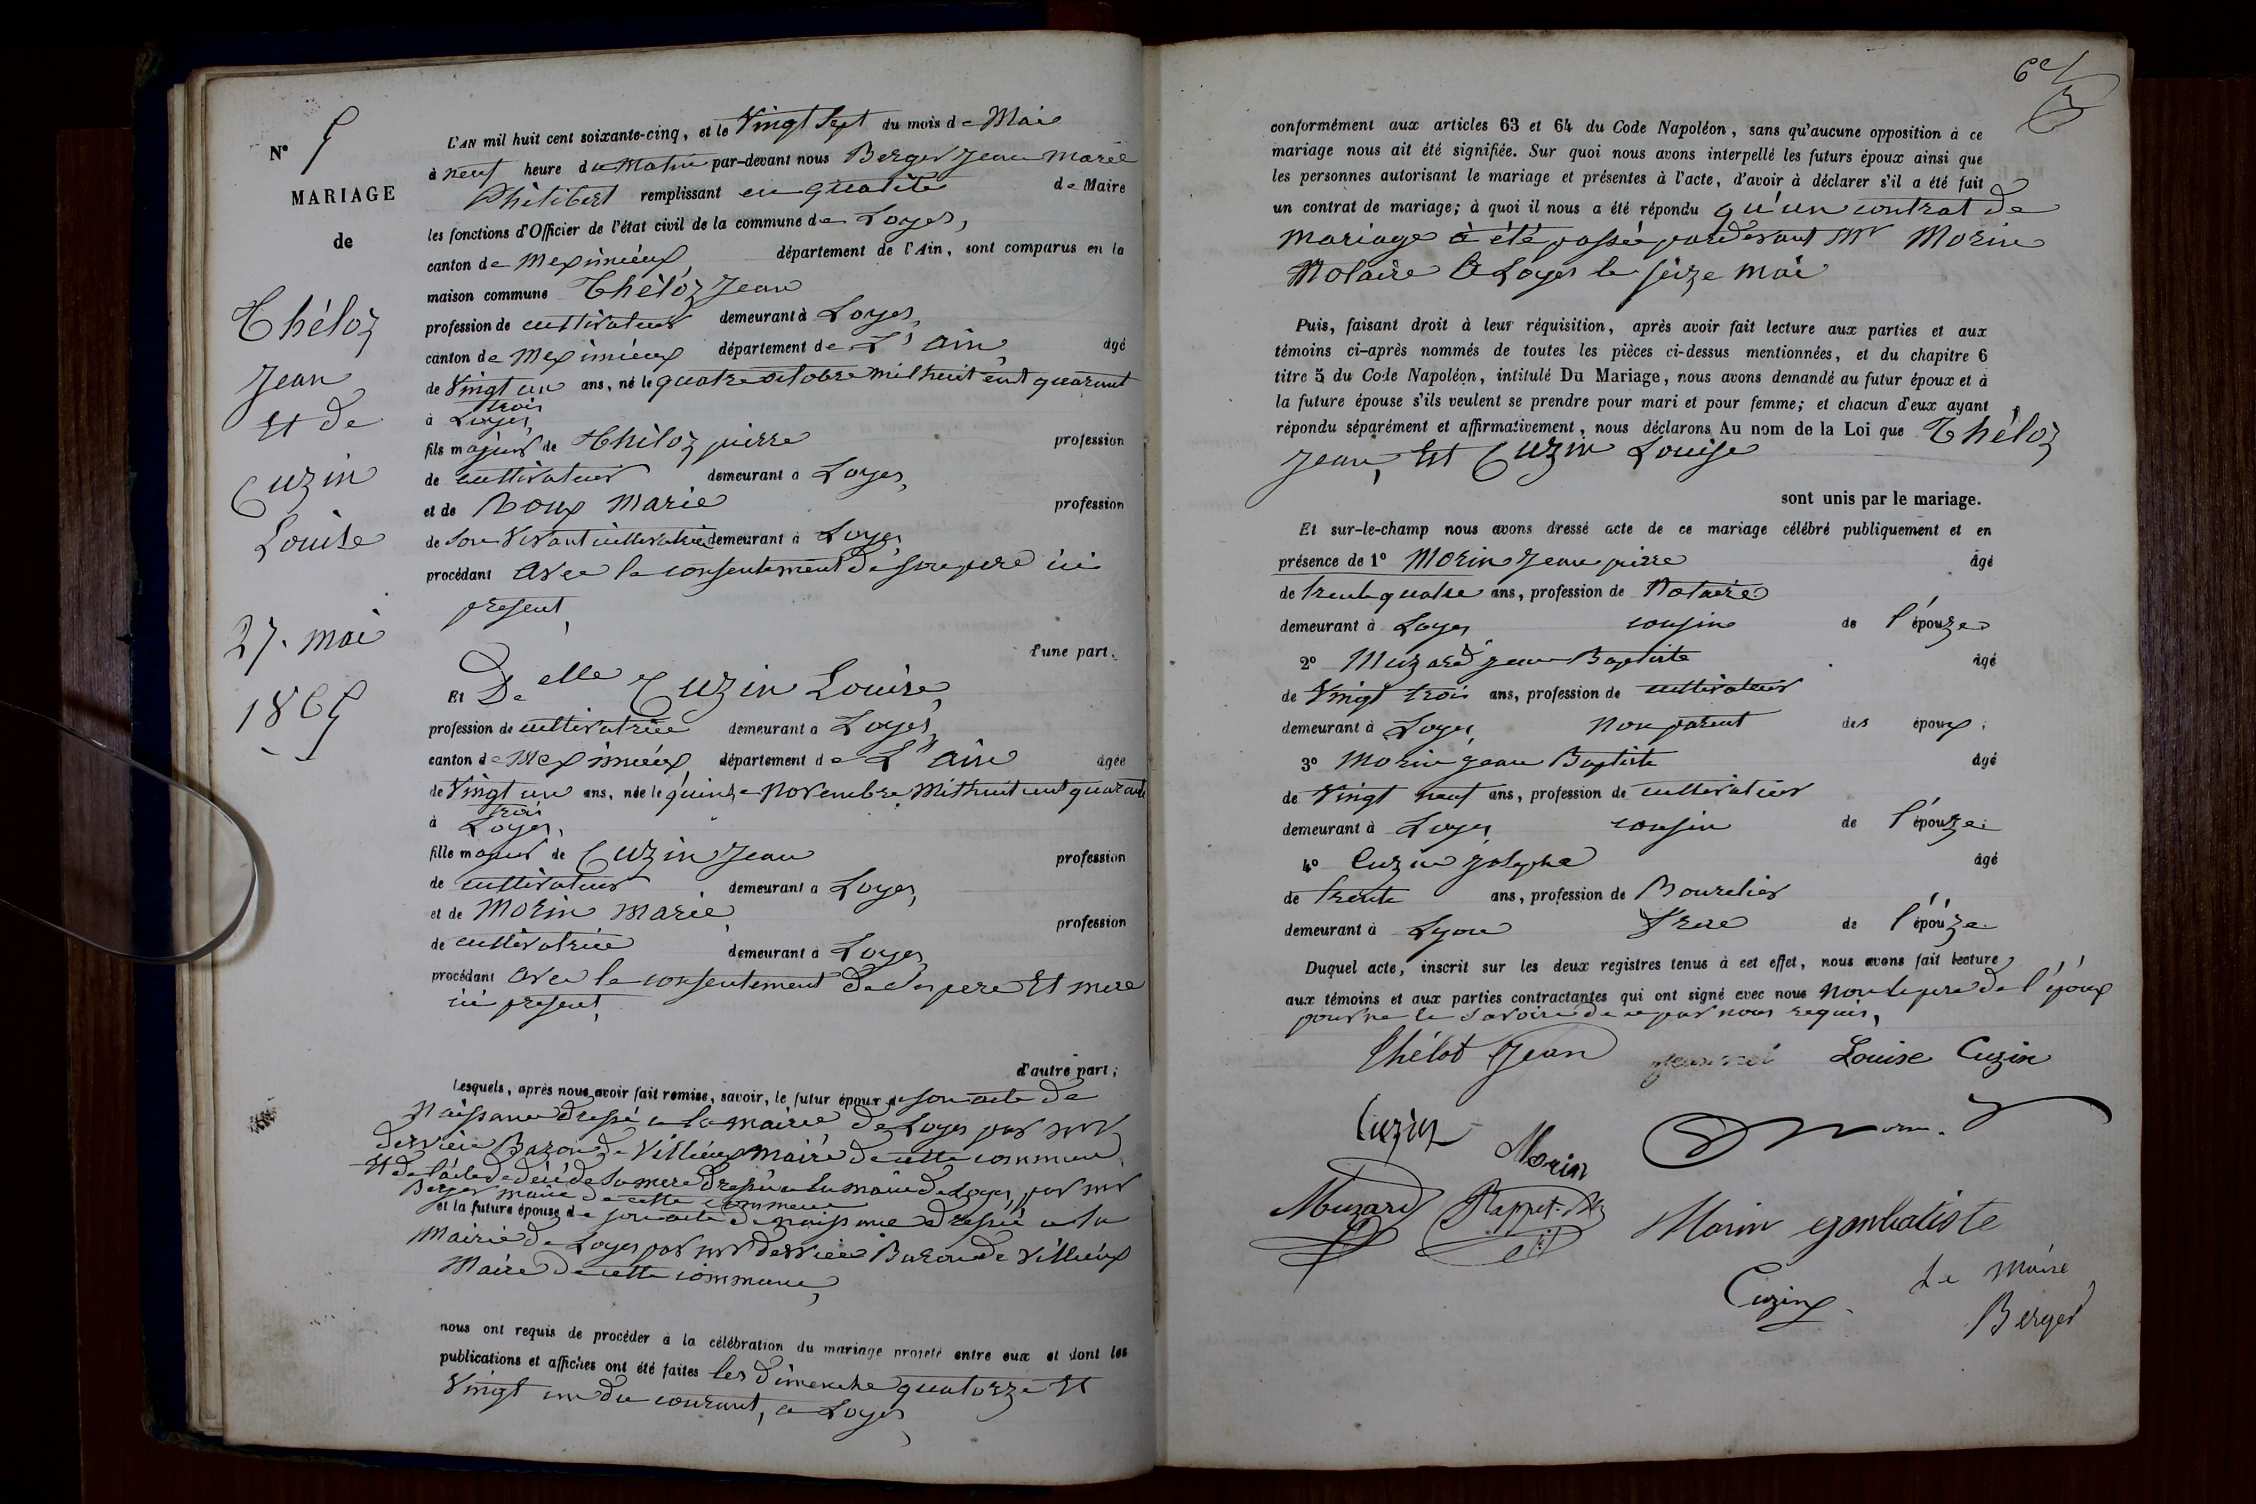 N° 5
MARIAGE
de
Théloz
Jean
Et de
Cuzin
Louise
27. mai
1865
L'AN mil huit cent soixante-cinq, et le Vingt Sept du mois de Mai
à neuf heure du Matin par-devant nous Berger Jean Marie
Philibert remplissant en qualité de Maire
les fonctions d'Officier de l'état civil de la commune de Loyes,
canton de Meximieux, département de l'Ain, sont comparus en la
maison commune Théloz Jean
profession de cultivateur demeurant à Loyes,
canton de Meximieux département de L'Ain, âgé
de Vingt un ans, né le quatre octobre mil huit cent quarant
trois
à Loyes,
fils majeur de Théloz pierre profession
de cultivateur demeurant a Loyes,
et de Roux Marie profession
de Son Vivant cultivatrice demeurant à Loyes
procédant avec le consentement de son pere ici
present,
d'une part.
Et Delle Cuzin Louise,
profession de cultivatrice demeurant a Loyes,
canton de Meximieux, département de L'Ain âgée
de Vingt un ans, née le quinze Novembre Mil huit cent quarante
trois
à Loyes,
fille majeur de Cuzin Jean profession
de cultivateur demeurant a Loyes,
et de Morin Marie, profession
de cultivatrice demeurant à Loyes,
procédant avec le consentement de Ses pere Et mere
ici present,
d'autre part;
Lesquels, après nous avoir fait remise, savoir, le futur époux de son acte de
Naissance dressé a la Mairie de Loyes par mr
derriere Baron de Villieux Maire de cette commune,
Et de l'acte de décé de Sa mere dressé a la mairie de Loyes, par mr
Berger maire de cette commune
et la future épouse de son acte de naissance dressé a la
Mairie de Loyes par mr derriere Baron de Villieux
Maire de cette commune,
nous ont requis de procéder à la célébration du mariage projeté entre eux et dont les
publications et affiches ont été faites les dimenche quatorze Et
Vingt un du courant, a Loyes,
conformément aux articles 63 et 64 du Code Napoléon, sans qu'aucune opposition à ce
mariage nous ait été signifiée. Sur quoi nous avons interpellé les futurs époux ainsi que
les personnes autorisant le mariage et présentes à l'acte, d'avoir à déclarer s'il a été fait
un contrat de mariage; à quoi il nous a été répondu qu'un contrat de
Mariage à été passé pardevant Mr Morin
Notaire A Loyes le seize mai
Puis, faisant droit à leur réquisition, après avoir fait lecture aux parties et aux
témoins ci-après nommés de toutes les pièces ci-dessus mentionnées, et du chapitre 6
titre 5 du Code Napoléon, intitulé Du Mariage, nous avons demandé au futur époux et à
la future épouse s'ils veulent se prendre pour mari et pour femme; et chacun d'eux ayant
répondu séparément et affirmativement, nous déclarons Au nom de la Loi que Théloz
Jean, Et Cuzin Louise
sont unis par le mariage.
Et sur-le-champ nous avons dressé acte de ce mariage célébré publiquement et en
présence de 1° Morin Jean pierre âgé
de trente quatre ans, profession de Notaire
demeurant à Loyes cousin de l'épouze
2° Muzard Jean Baptiste âgé
de Vingt trois ans, profession de cultivateur
demeurant à Loyes, Non parent des époux.
3° Morin Jean Baptiste âgé
de Vingt neuf ans, profession de cultivateur
demeurant à Loyes cousin de l'épouze
4° Cuzin Josephe âgé
de trente ans, profession de Bourelier
demeurant à Lyon frere de l'épouze
Duquel acte, inscrit sur les deux registres tenus à cet effet, nous avons fait lecture
aux témoins et aux parties contractantes qui ont signé avec nous Non le pere de l'époux
pour ne le Savoire de ce par nous requis,
Thélot Jean Louise Cuzin
Cuzin Morin
Muzard Morin
Cuzin
Le Maire
Berger